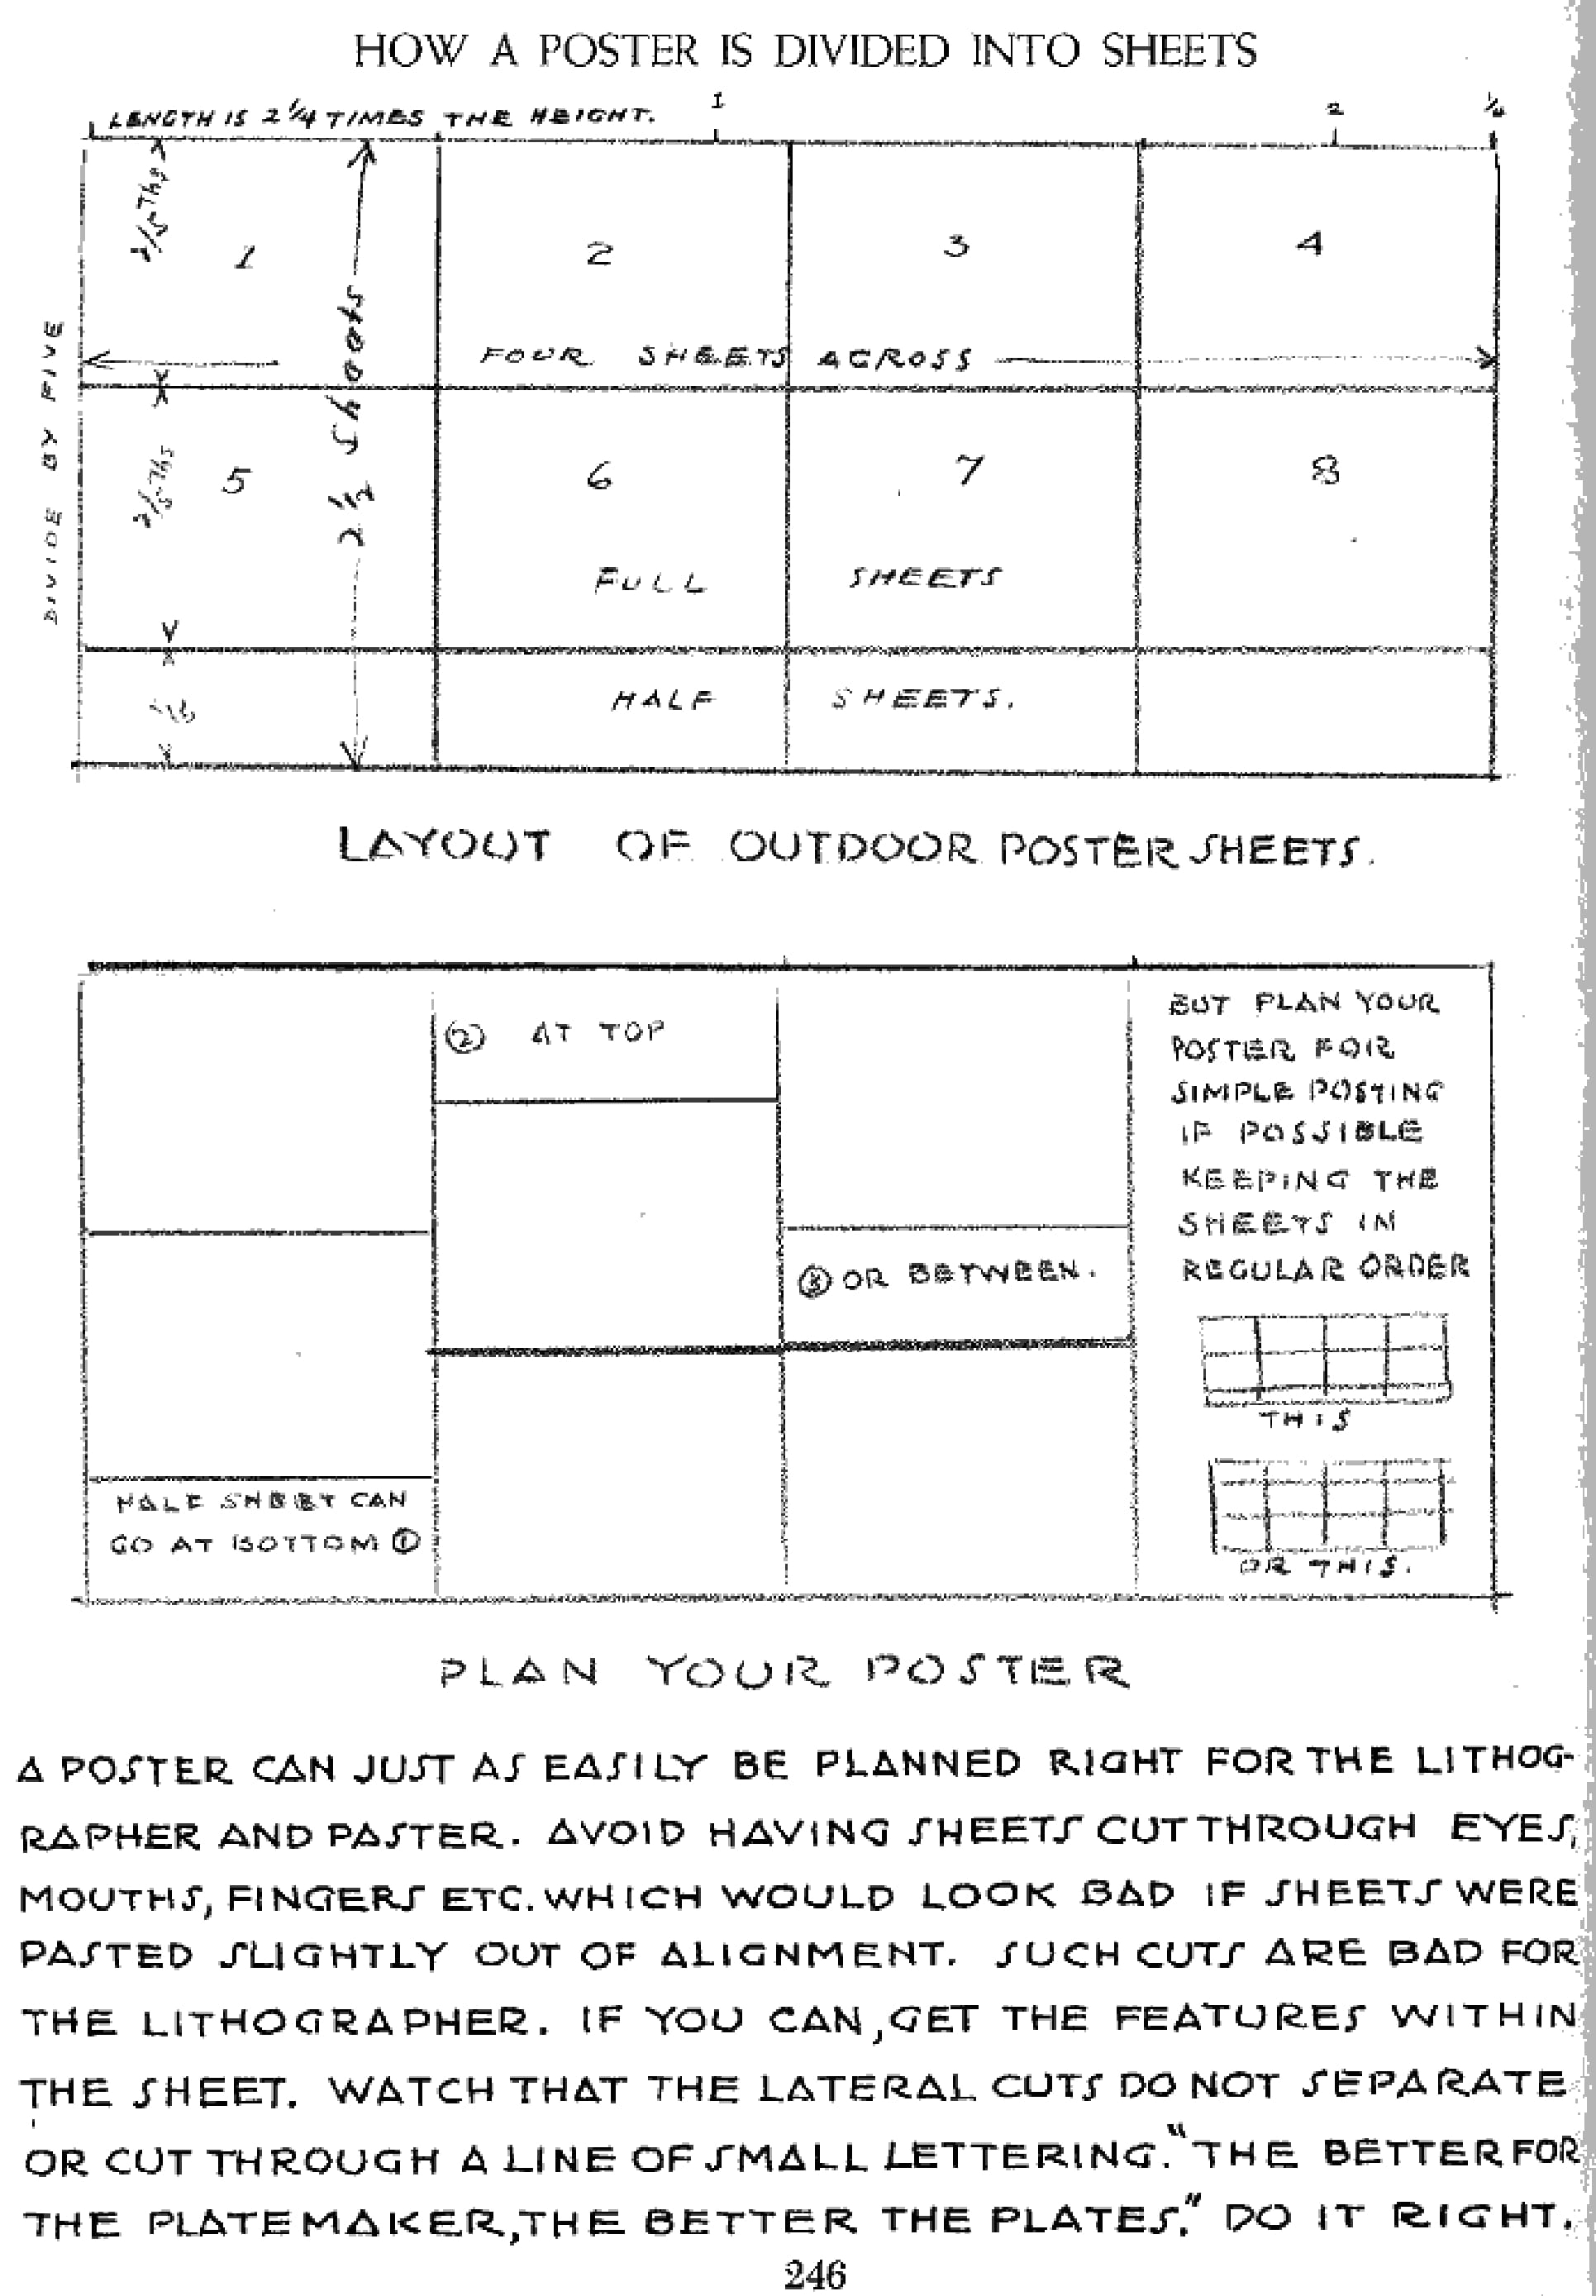 HOW A POSTER IS DIVIDED INTO SHEETS
LENGTH IS 2 1/4 TIMES THE HEIGHT.
1
2
1/4
DIVIDE BY FIVE
2/5 Ths
2/5 Ths
1/5
2 1/2
1
2
3
4
FOUR SHEETS ACROSS
5
6
7
8
FULL SHEETS
HALF SHEETS.
LAYOUT OF OUTDOOR POSTER SHEETS.
② AT TOP
③ OR BETWEEN.
HALF SHEET CAN
GO AT BOTTOM ①
BUT PLAN YOUR
POSTER FOR
SIMPLE POSTING
IF POSSIBLE
KEEPING THE
SHEETS IN
REGULAR ORDER
THIS
OR THIS.
PLAN YOUR POSTER
A POSTER CAN JUST AS EASILY BE PLANNED RIGHT FOR THE LITHOG-
RAPHER AND PASTER. AVOID HAVING SHEETS CUT THROUGH EYES,
MOUTHS, FINGERS ETC. WHICH WOULD LOOK BAD IF SHEETS WERE
PASTED SLIGHTLY OUT OF ALIGNMENT. SUCH CUTS ARE BAD FOR
THE LITHOGRAPHER. IF YOU CAN, GET THE FEATURES WITHIN
THE SHEET. WATCH THAT THE LATERAL CUTS DO NOT SEPARATE
OR CUT THROUGH A LINE OF SMALL LETTERING. "THE BETTER FOR
THE PLATEMAKER, THE BETTER THE PLATES." DO IT RIGHT.
246